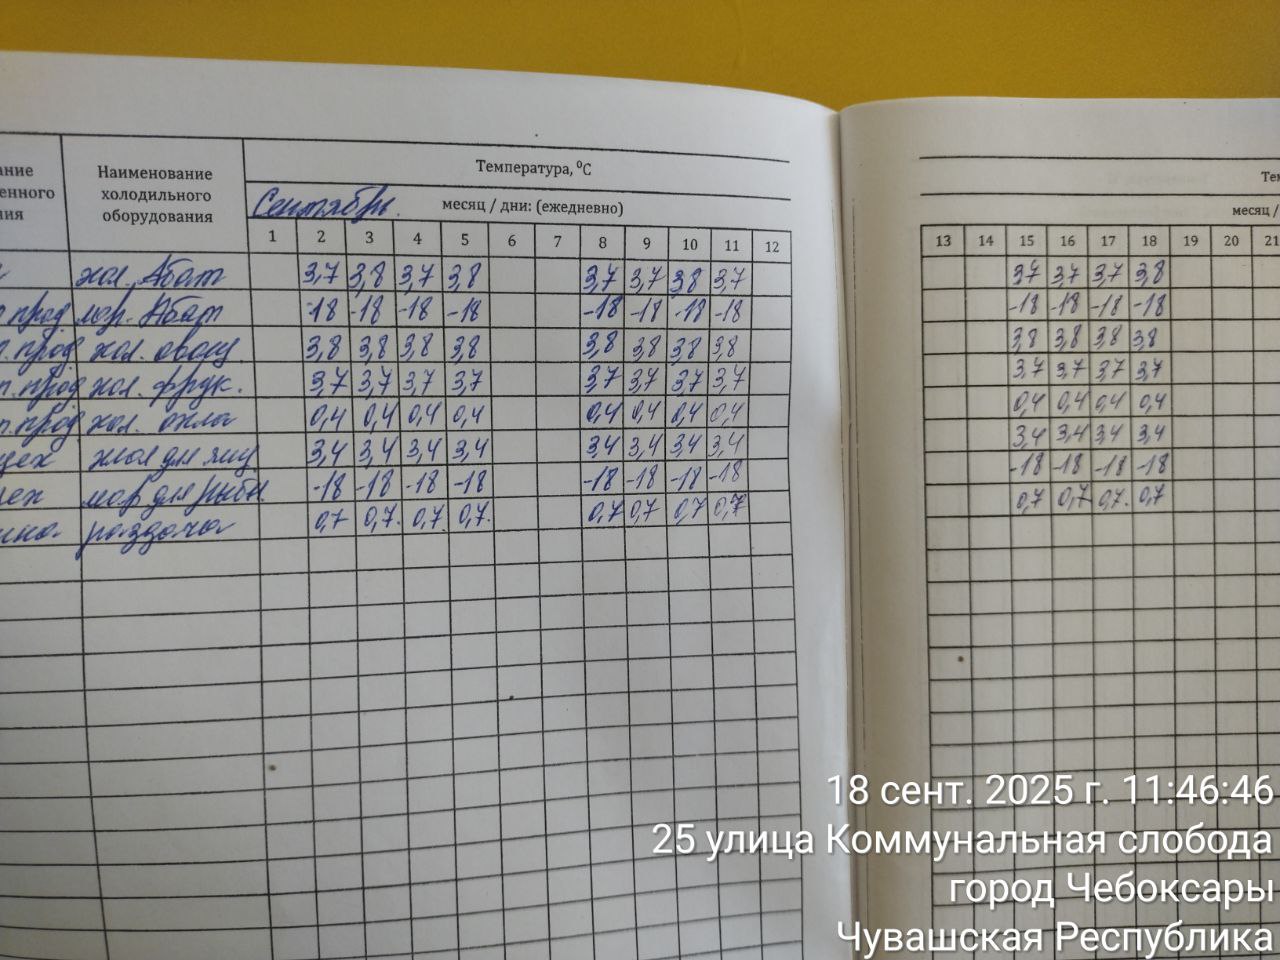 Температура, ⁰С
Наименование холодильного оборудования
Сентябрь. месяц / дни: (ежедневно)
1 2 3 4 5 6 7 8 9 10 11 12
хол. Абат 3,7 3,8 3,7 3,8 3,7 3,7 3,8 3,7
прод мор. Абат -18 -18 -18 -18 -18 -18 -18 -18
прод хол. овощ. 3,8 3,8 3,8 3,8 3,8 3,8 3,8 3,8
прод хол. фрук. 3,7 3,7 3,7 3,7 3,7 3,7 3,7 3,7
прод хол. 0,4 0,4 0,4 0,4 0,4 0,4 0,4 0,4
цех для яиц 3,4 3,4 3,4 3,4 3,4 3,4 3,4 3,4
мор для рыбы -18 -18 -18 -18 -18 -18 -18 -18
раздача 0,7 0,7. 0,7. 0,7. 0,7 0,7 0,7 0,7
месяц /
13 14 15 16 17 18 19 20 21
3,7 3,7 3,7 3,8
-18 -18 -18 -18
3,8 3,8 3,8 3,8
3,7 3,7 3,7 3,7
0,4 0,4 0,4 0,4
3,4 3,4 3,4 3,4
-18 -18 -18 -18
0,7 0,7 0,7. 0,7
18 сент. 2025 г. 11:46:46
25 улица Коммунальная слобода
город Чебоксары
Чувашская Республика